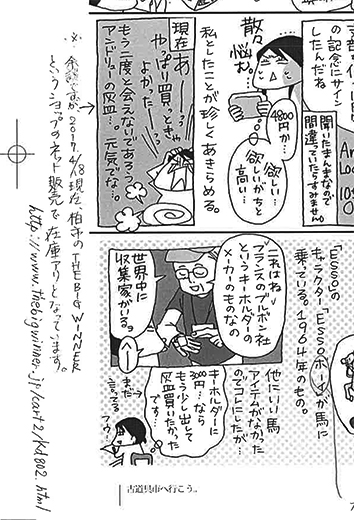 の記念にサイン
したんだね
聞いたまんまなので
間違っていたらすみません
散々
悩む。
4800円か…
欲しい…
欲しいがちと
高い…
私としたことが珍しくあきらめる。
現在
あーっ
やっぱり買っときゃ
よかったー
もう二度と会えないであろう
アンドリューの灰皿…。元気でな…。
「ESSO」の
キャラクター「ESSOボーイ」が馬に
乗っている。1964年のもの。
これはね
フランスのブルボン社
というキーホルダーの
メーカーのものなの
世界中に
収集家がいる。
他にいい馬
アイテムがなかった
のでコレにしたが…
キーホルダーに
3000円…なら
もう少し出して
灰皿買いたかった
です…
まだ
言ってる
フゥ
古道具市へ行こう。
2017. 4/18 現在、柏市の THE BIG WINNER
というショップのネット販売で在庫アリとなってます。
http://www.thebigwinner.jp/cart2/kd802.html